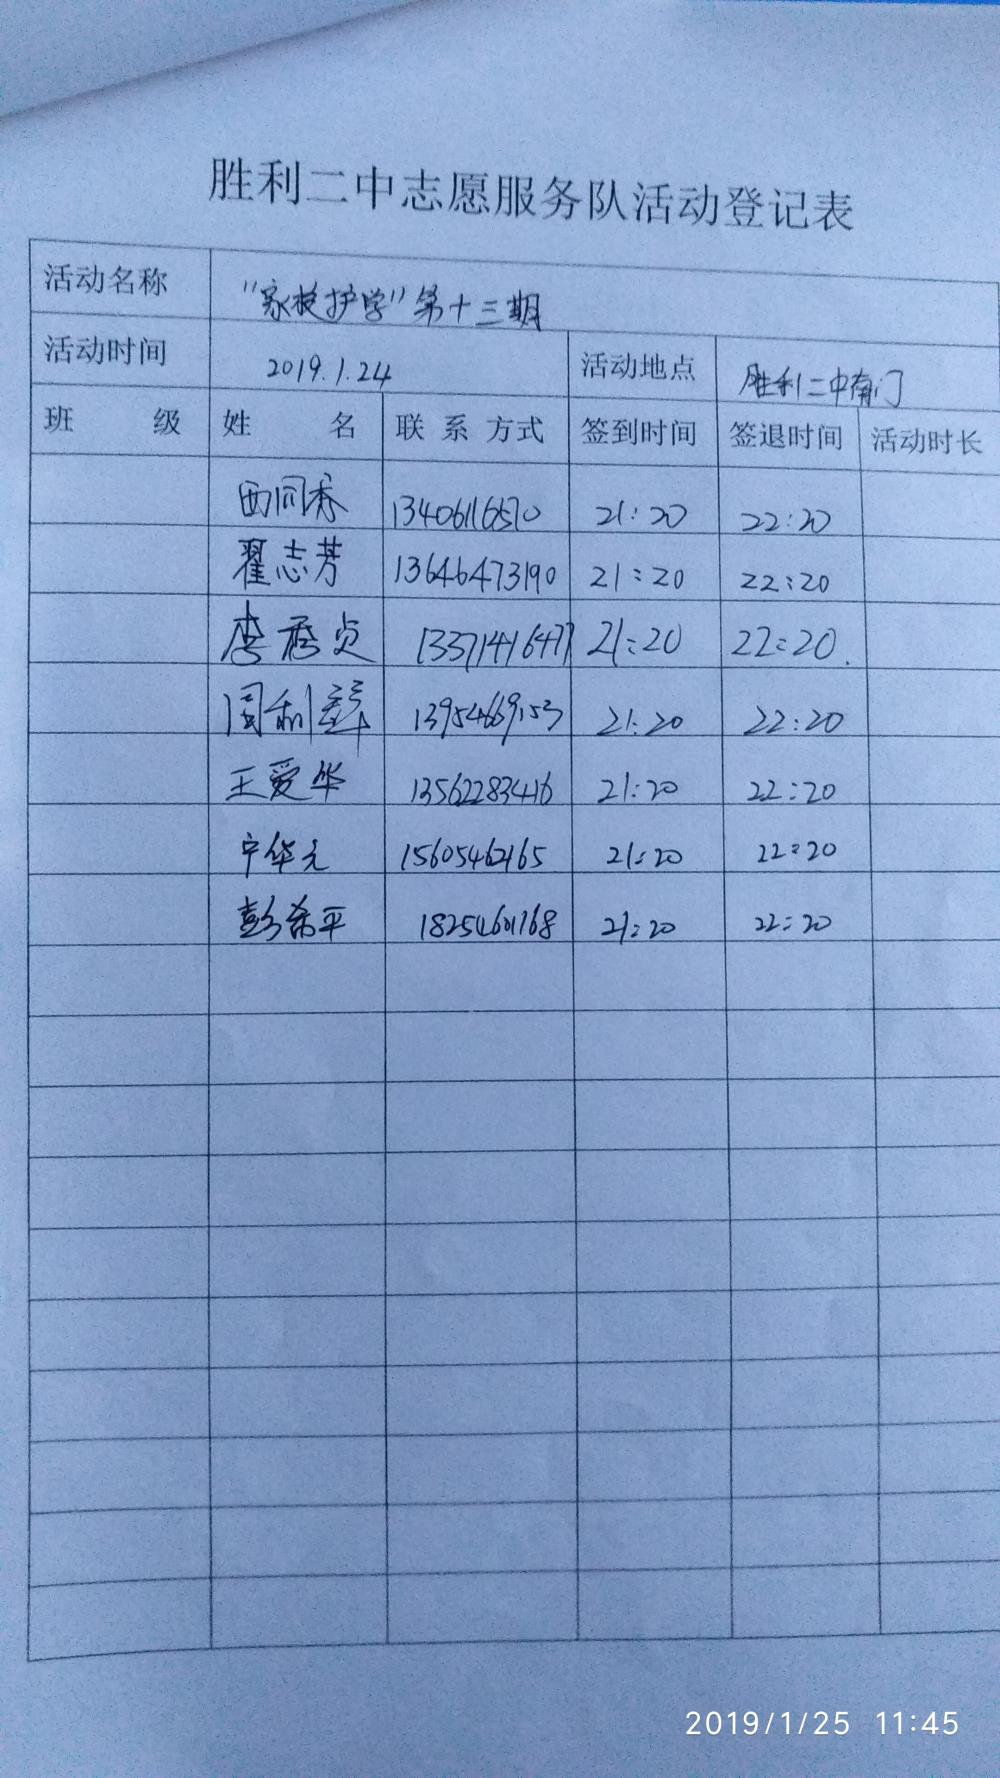 胜利二中志愿服务队活动登记表
活动名称 "家校护学"第十三期
活动时间 2019.1.24 活动地点 胜利二中南门
班 级 姓 名 联 系 方式 签到时间 签退时间 活动时长
西同秀 13406116570 21:20 22:20
翟志芳 13646473190 21:20 22:20
李秀贞 13371416477 21:20 22:20.
周利 13954669153 21:20 22:20
王爱华 13562283416 21:20 22:20
宁华元 15605462165 21:20 22:20
彭希平 18254601768 21:20 22:20
2019/1/25 11:45